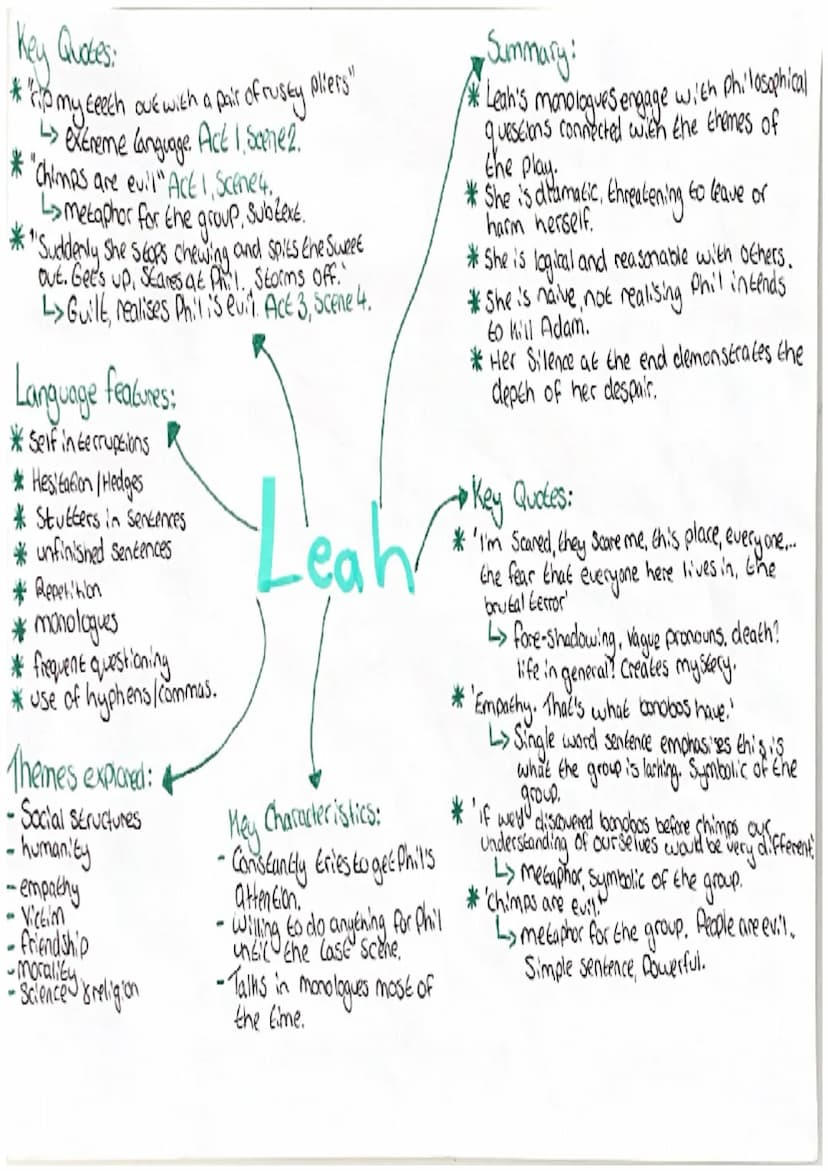 Key Quotes:
* "rip my teeth out with a pair of rusty pliers"
↳ extreme language. Act 1, Scene 2.
* "Chimps are evil" Act 1, Scene 4.
↳ metaphor for the group, Subtext.
* "Suddenly She stops chewing and spits the sweet
out. Get's up, Stares at Phil. Storms off.'
↳ Guilt, realises Phil is evil. Act 3, Scene 4.
Language features:
* Self interruptions
* Hesitation/Hedges
* Stutters in Sentences
* unfinished sentences
* Repetition
* monologues
* frequent questioning
* use of hyphens/commas.
Themes explored:
- Social structures
- humanity
- empathy
- Victim
- friendship
- morality
- Science & religion
Leah
Key Characteristics:
- Constantly tries to get Phil's
Attention.
- Willing to do anything for Phil
until the last scene.
- Talks in monologues most of
the time.
Summary:
* Leah's monologues engage with philosophical
questions connected with the themes of
the play.
* She is dramatic, threatening to leave or
harm herself.
* She is logical and reasonable with others.
* She is naive, not realising Phil intends
to kill Adam.
* Her Silence at the end demonstrates the
depth of her despair.
Key Quotes:
* 'I'm Scared, they Scare me, this place, everyone,..
the fear that everyone here lives in, the
brutal terror'
↳ fore-shadowing, vague pronouns. death?
life in general? Creates mystery.
* 'Empathy. That's what bonobos have.'
↳ Single word sentence emphasises this is
what the group is lacking. Symbolic of the
group.
* 'if we'd discovered bonobos before chimps our
understanding of ourselves would be very different'
↳ metaphor, symbolic of the group.
* 'Chimps are evil.'
↳ metaphor for the group. People are evil.
Simple sentence, Powerful.